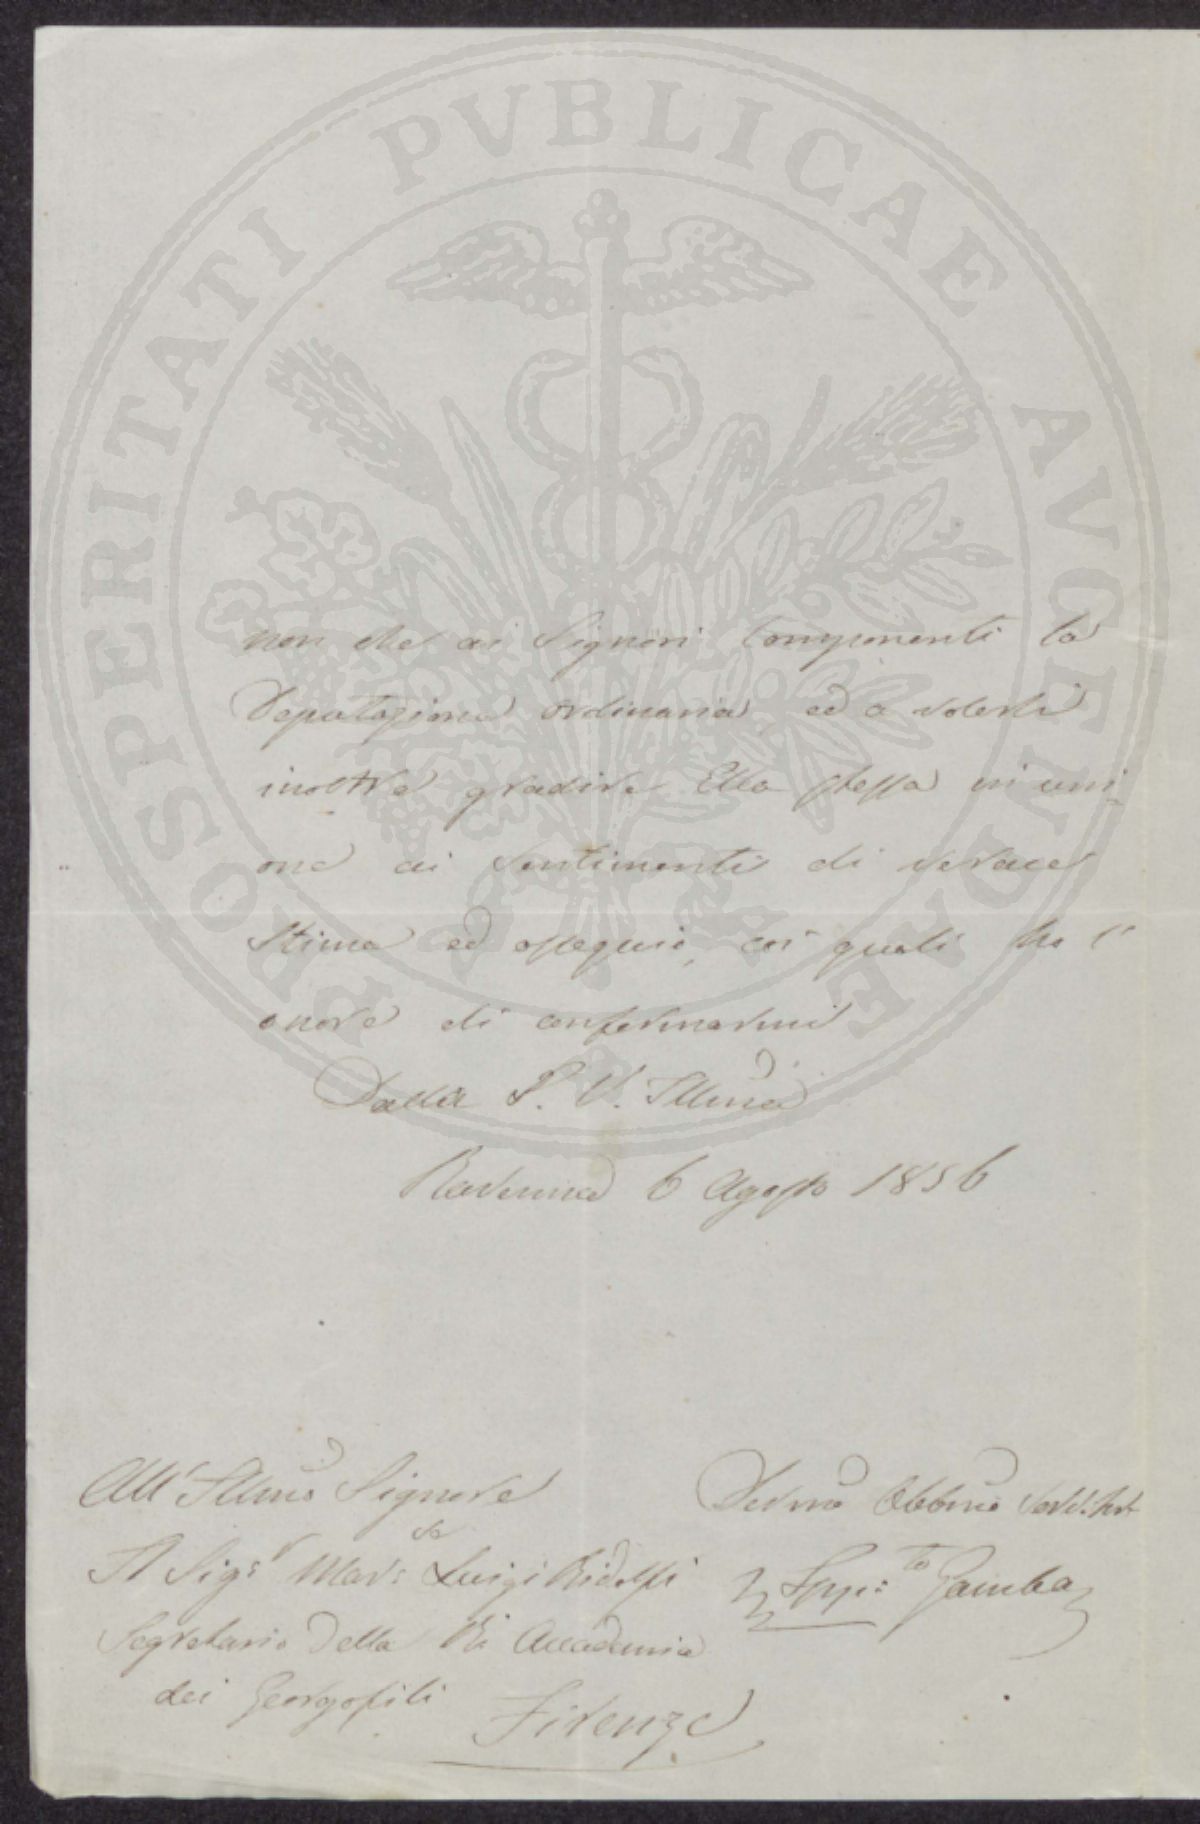 PROSPERITATI PVBLICAE AVGENDAE
non che ai Signori Componenti la
Deputazione ordinaria, ed a volersi
inoltre gradire Ella stessa in uni-
one ai Sentimenti di verace
Stima ed ossequio, coi quali ho l'
onore di confermarmi
Della S. V. Illma
Ravenna 6 Agosto 1856
All' Illmo Signore
Il Sigr Mars: Luigi Ridolfi
Segretario della Ri Accademia
dei Georgofili
Firenze
Devmo Obbmo
Ippto Gamba